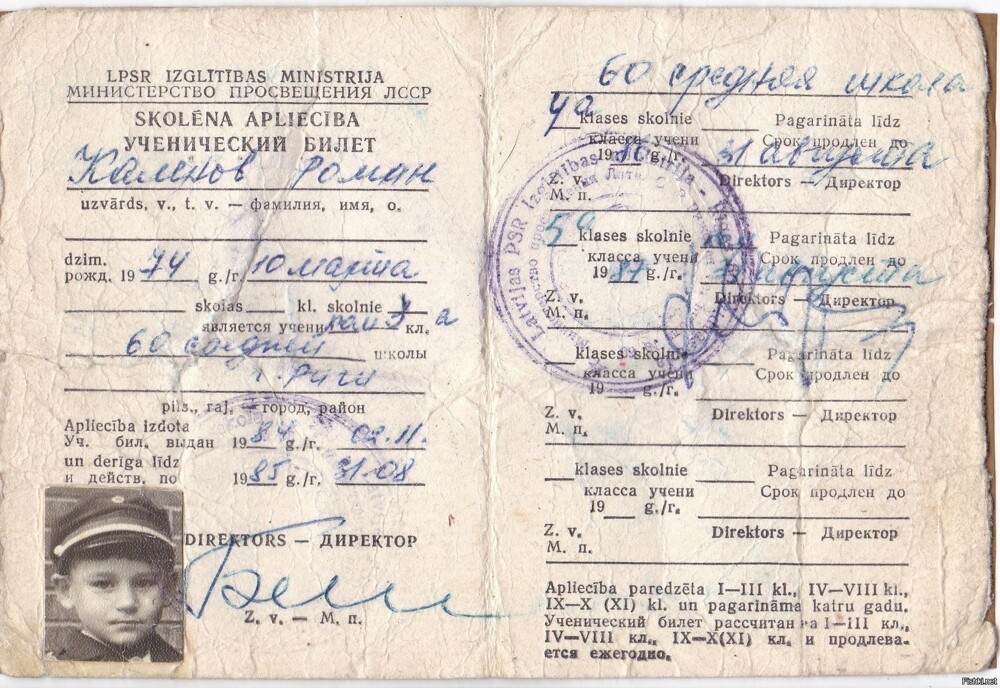 LPSR IZGLĪTĪBAS MINISTRIJA
МИНИСТЕРСТВО ПРОСВЕЩЕНИЯ ЛССР
SKOLĒNA APLIECĪBA
УЧЕНИЧЕСКИЙ БИЛЕТ
Каленов Роман
uzvārds, v., t. v. — фамилия, имя, о.
dzim.
рожд. 1974 g./г. 10 марта
skolas kl. skolnie
является учени кл. а
60 средней школы
г. Риги
pils., raj. — город, район
Apliecība izdota
Уч. бил. выдан 1984 g./г. 02.11.
un derīga līdz
и действ. по 1985 g./г. 31-08
DIREKTORS — ДИРЕКТОР
Z. v. — М. п.
60 средняя школа
4а klases skolnie Pagarināta līdz
класса учени Срок продлен до
1986 g./г. 31 августа
Z. v. Direktors — Директор
М. п.
5а klases skolnie Pagarināta līdz
класса учени Срок продлен до
1987 g./г. августа
Z. v. Direktors — Директор
М. п.
klases skolnie Pagarināta līdz
класса учени Срок продлен до
19 g./г.
Z. v. Direktors — Директор
М. п.
klases skolnie Pagarināta līdz
класса учени Срок продлен до
19 g./г.
Z. v. Direktors — Директор
М. п.
Apliecība paredzēta I—III kl., IV—VIII kl.,
IX—X (XI) kl. un pagarināma katru gadu.
Ученический билет рассчитан на I—III кл.,
IV—VIII кл., IX—X(XI) кл. и продлева-
ется ежегодно.
Latvijas PSR Izglītības
Fishki.net